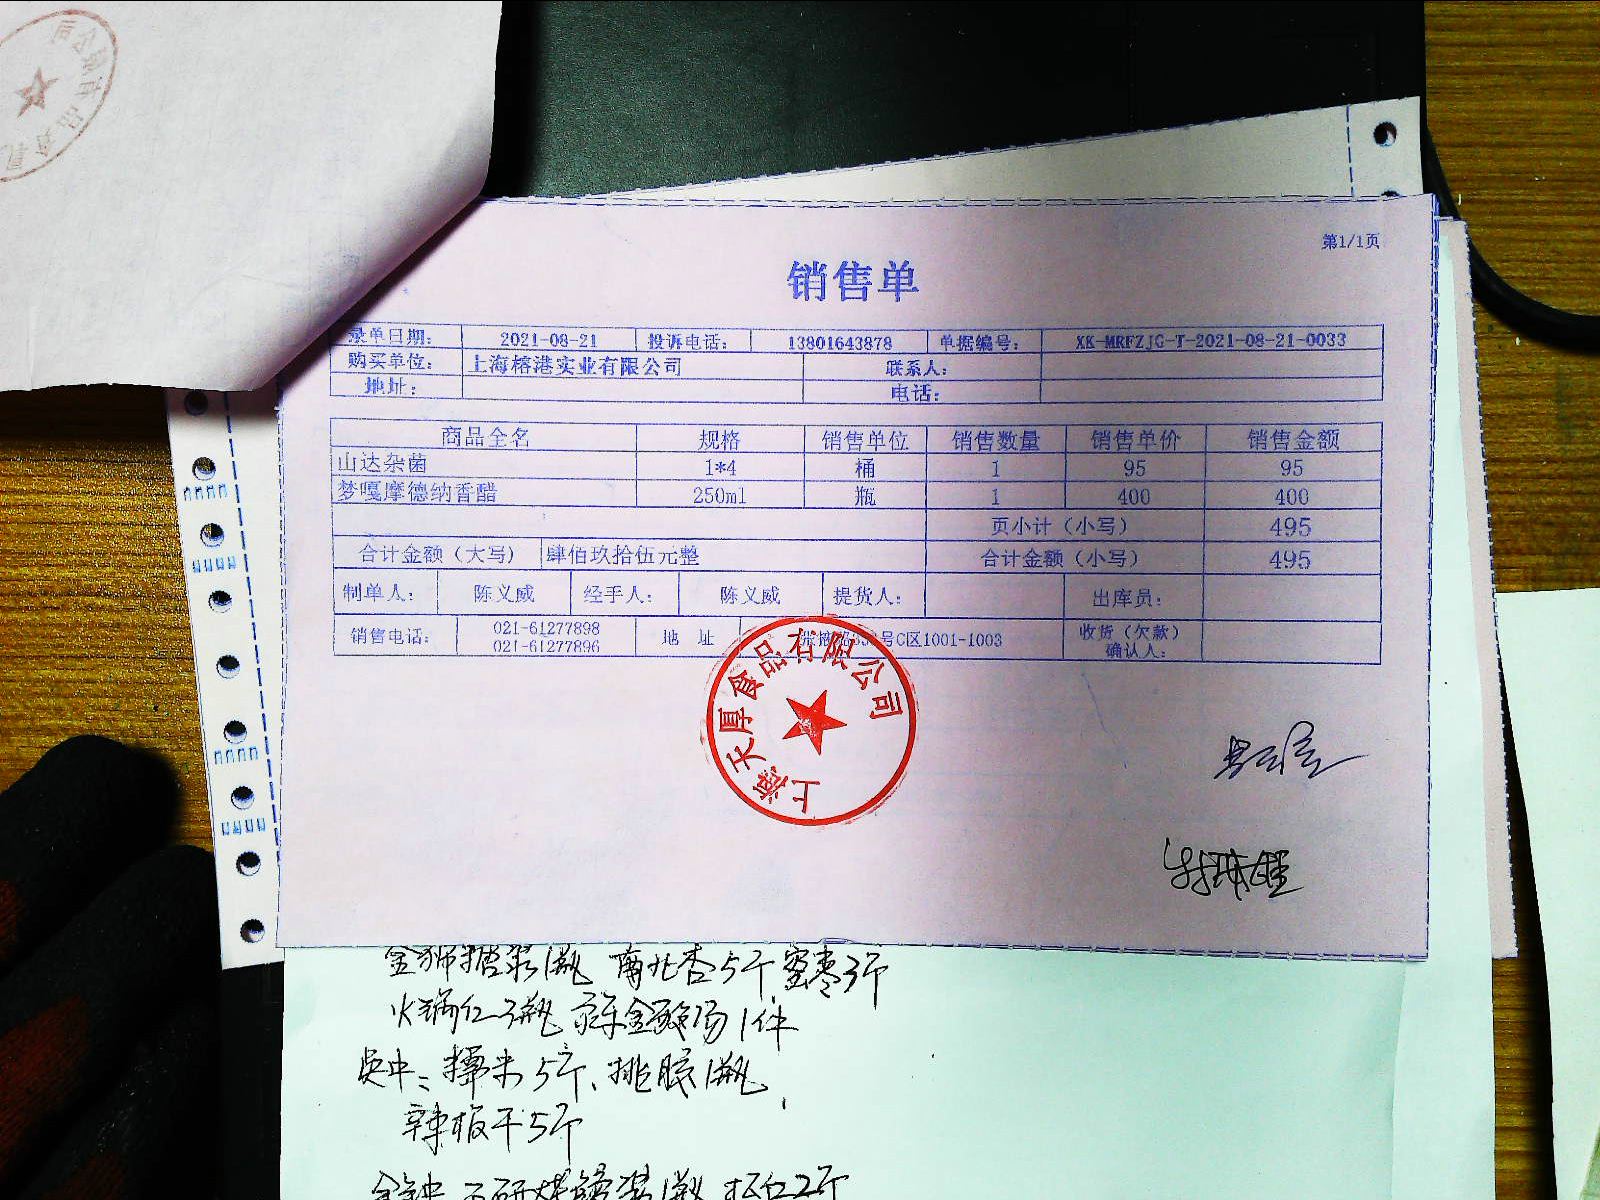 第1/1页
销售单
录单日期： 2021-08-21 投诉电话： 13801643878 单据编号： XK-MRFZJG-T-2021-08-21-0033
购买单位： 上海榕港实业有限公司 联系人：
地址： 电话：
商品全名 规格 销售单位 销售数量 销售单价 销售金额
山达杂菌 1*4 桶 1 95 95
梦嘎摩德纳香醋 250ml 瓶 1 400 400
页小计（小写） 495
合计金额（大写） 肆佰玖拾伍元整 合计金额（小写） 495
制单人： 陈义威 经手人： 陈义威 提货人： 出库员：
销售电话： 021-61277898 地 址 号C区1001-1003 收货（欠款）
021-61277896 确认人：
上海天厚食品有限公司
1瓶 南北杏5斤 蜜枣3斤
火锅红 3瓶 1件
5斤、 1瓶
辣板干5斤
1瓶 2斤